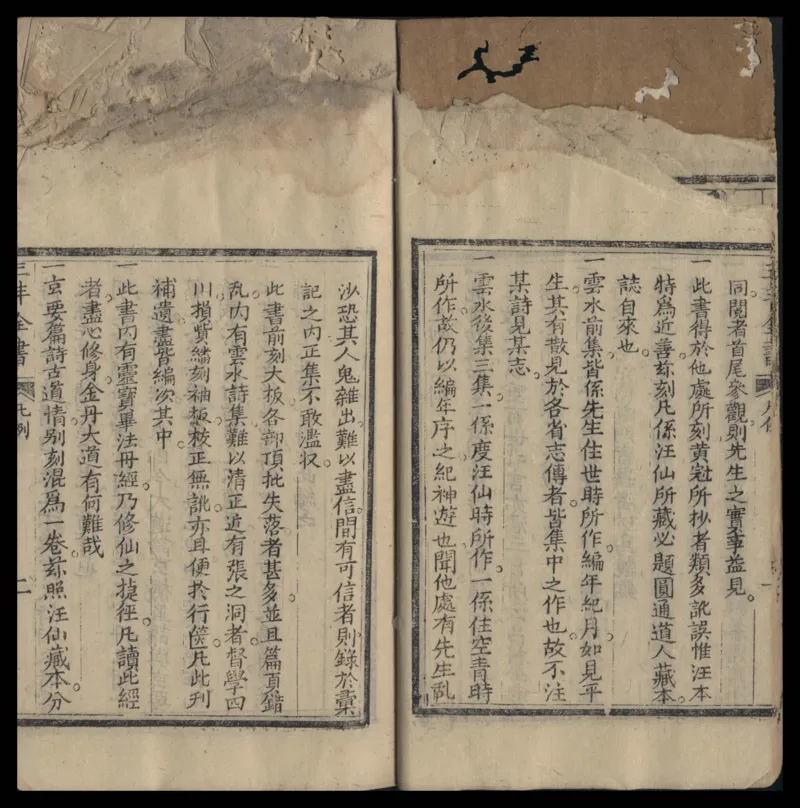 同閱者首尾參觀則先生之實事益見
一此書得於他處所刻黃冠所抄者類多訛誤惟汪本
特爲近善玆刻凡係汪仙所藏必題圓通道人藏本
誌自來也
一雲水前集皆係先生住世時所作編年紀月如見平
生其有散見於各省志傳者皆集中之作也故不注
某詩見某志
一雲水後集三集一係度汪仙時所作一係住空青時
所作故仍以編年序之紀神遊也聞他處有先生乩
沙恐其人鬼雜出難以盡信間有可信者則錄於彙
記之內正集不敢濫収
此書前刻大板各部頂批失落者甚多並且篇頁錯
乱內有雲水詩集難以清正近有張之洞者督學四
川捐貲繙刻袖板校正無訛亦且便於行篋凡此刊
補遺盡皆編次其中
一此書內有靈寶畢法丹經乃修仙之捷徑凡讀此經
者盡心修身金丹大道有何難哉
一玄要篇詩古道情别刻混爲一卷玆照汪仙藏本分
三丰全書
凡例
二